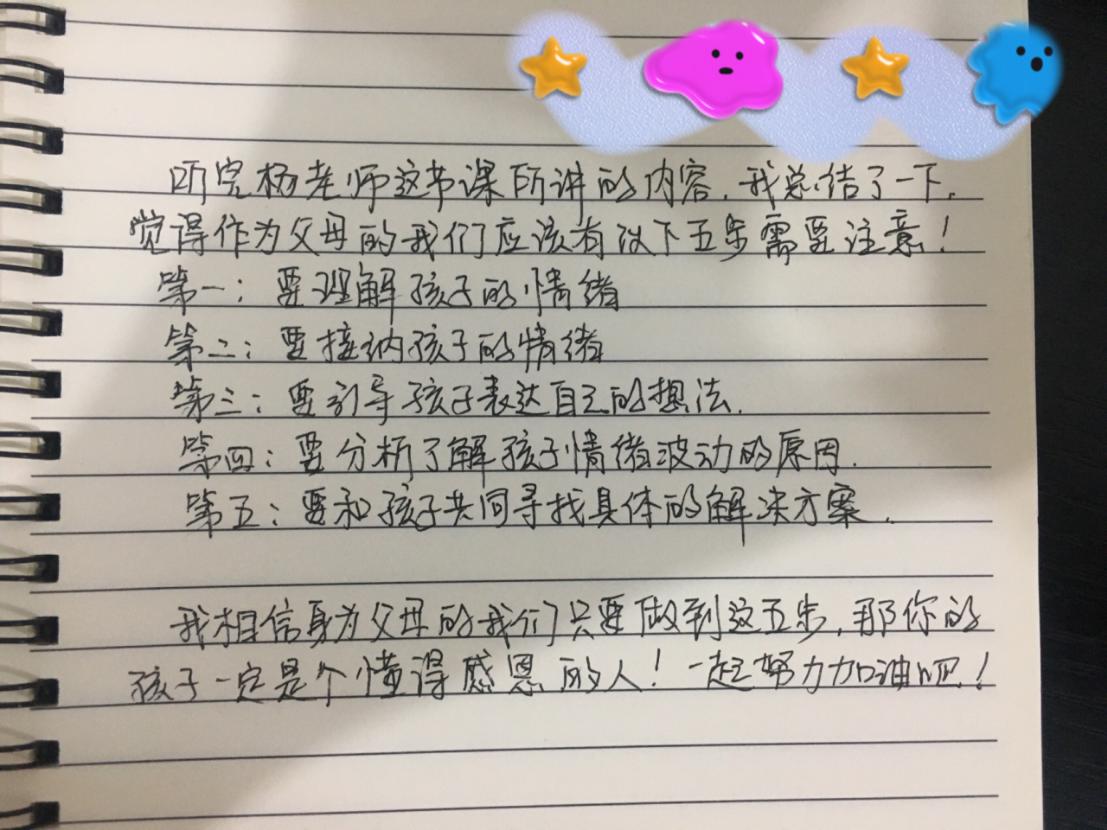 听完杨老师这节课所讲的内容，我总结了一下，
觉得作为父母的我们应该有以下五步需要注意！
第一：要理解孩子的情绪
第二：要接纳孩子的情绪
第三：要引导孩子表达自己的想法.
第四：要分析了解孩子情绪波动的原因.
第五：要和孩子共同寻找具体的解决方案.
我相信身为父母的我们只要做到这五步，那你的
孩子一定是个懂得感恩的人！一起努力加油吧！